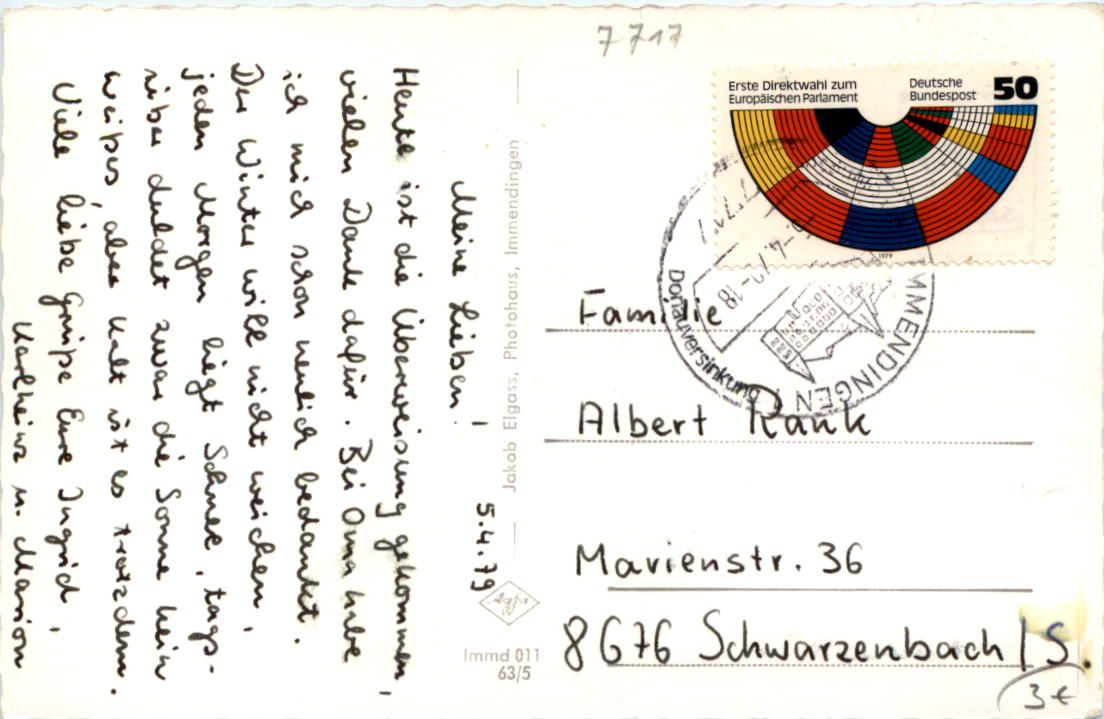 7717
Erste Direktwahl zum
Europäischen Parlament
Deutsche
Bundespost
50
1979
IMMENDINGEN
Donauversinkung
-4.79-18
7717
5.4.79
Meine Lieben!
Heute ist die Überweisung gekommen,
vielen Dank dafür. Bei Oma habe
ich mich schon neulich bedankt.
Der Winter will nicht weichen,
jeden Morgen liegt Schnee, tags-
über duldet zwar die Sonne kein
weißes, aber kalt ist es trotzdem.
Viele liebe Grüße Eure Ingrid,
Karlheinz u. Marion
Jakob Elgass, Photohaus, Immendingen
Agfa
Immd 011
63/5
Familie
Albert Rank
Marienstr. 36
8676 Schwarzenbach/S.
3€